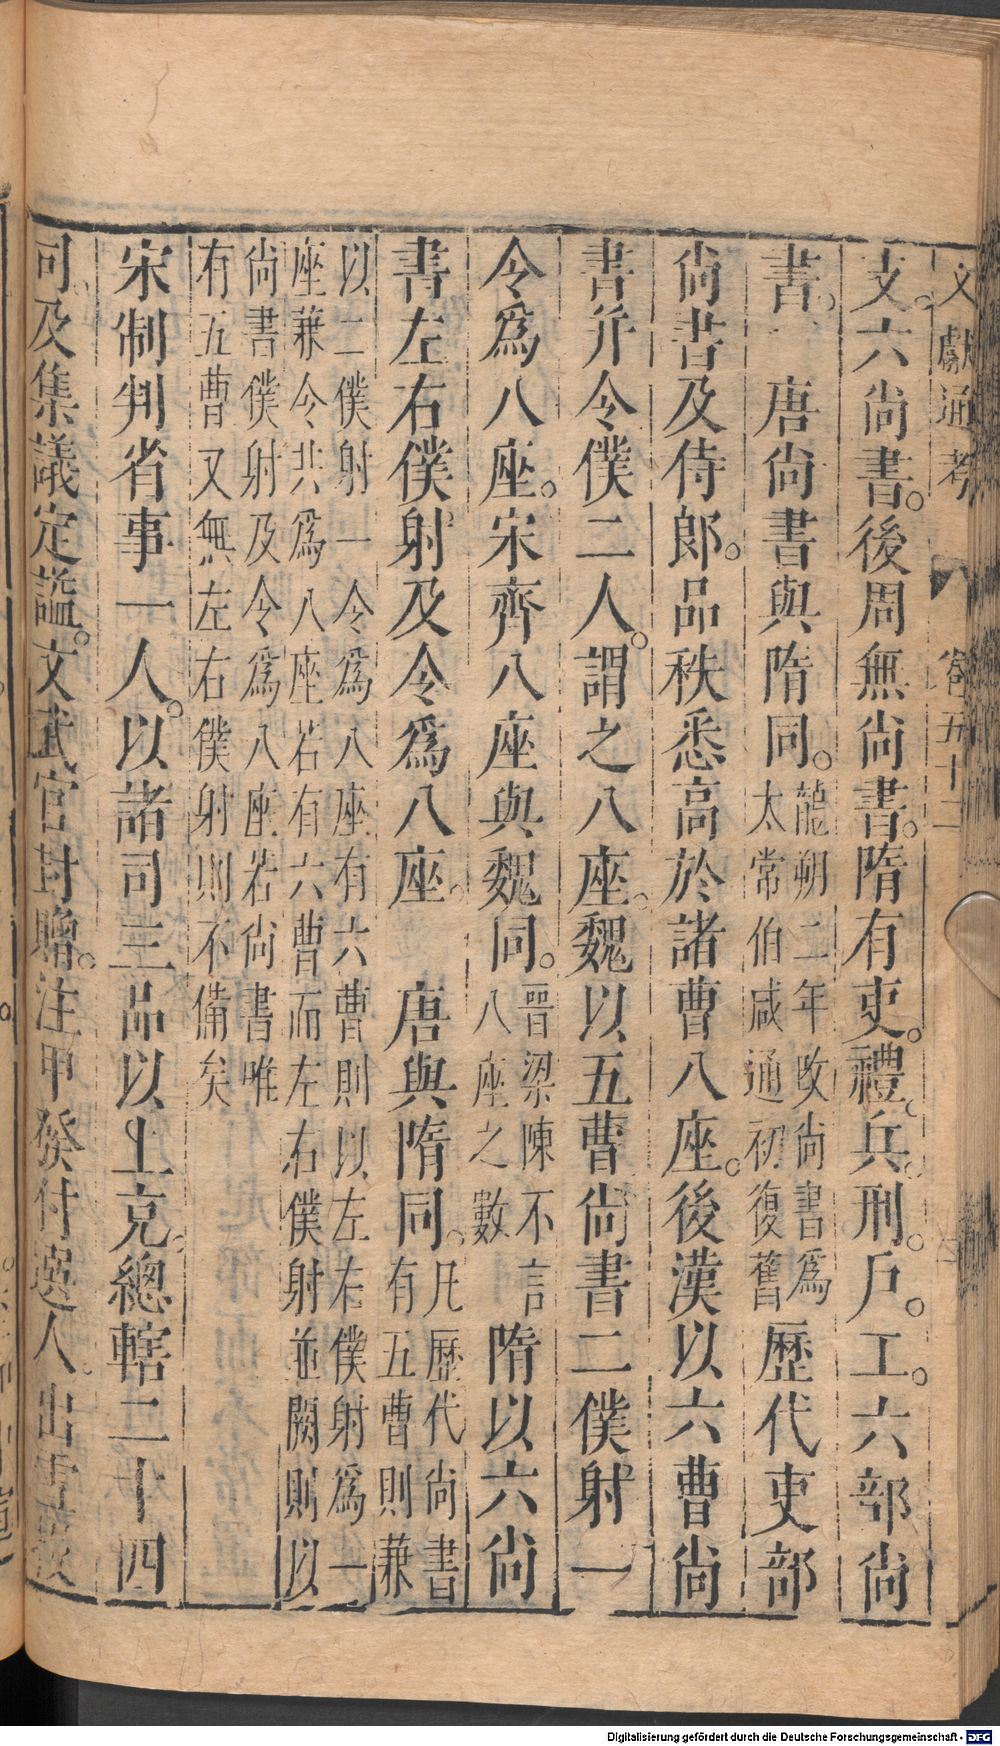 文獻通考 卷五十二
支。六尚書。後周無尚書。隋有吏。禮。兵。刑。戶。工。六部尚
書。 唐尚書與隋同。龍朔二年改尚書爲太常伯咸通初復舊 歷代吏部
尚書及侍郎。品秩悉高於諸曹八座。後漢以六曹尚
書并令僕二人。謂之八座。魏以五曹尚書二僕射一
令爲八座。宋齊八座與魏同。晉梁陳不言八座之數 隋以六尚
書左右僕射及令爲八座。 唐與隋同。凡歷代尚書有五曹則兼
以二僕射一令爲八座有六曹則以左右僕射爲一
座兼令共爲八座若有六曹而左右僕射並闕則以
尚書僕射及令爲八座若尚書唯
有五曹又無左右僕射則不備矣
宋制判省事一人。以諸司三品以上充。總轄二十四
司。及集議定謚。文武官封贈。注甲發付選人。出雪投
Digitalisierung gefördert durch die Deutsche Forschungsgemeinschaft - DFG